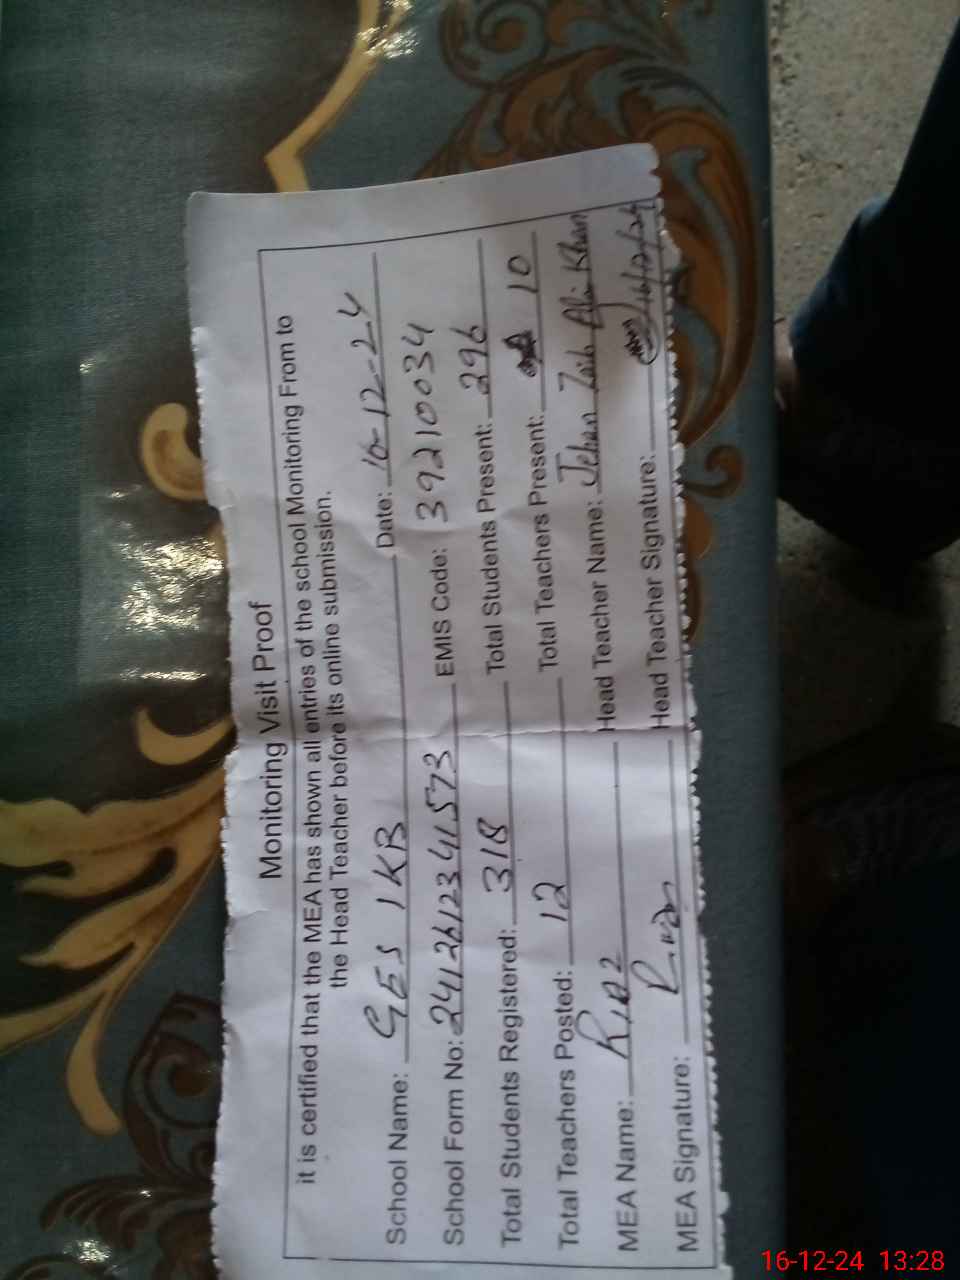 Monitoring Visit Proof
it is certified that the MEA has shown all entries of the school Monitoring From to
the Head Teacher before its online submission.
School Name: GES 1KB Date: 16-12-24
School Form No: 24126123441573 EMIS Code: 39210034
Total Students Registered: 318 Total Students Present: 296
Total Teachers Posted: 12 Total Teachers Present: 10
MEA Name: Riaz Head Teacher Name: Jehan Zaib Ali Khan
MEA Signature: Riaz Head Teacher Signature: 16/12/24
16-12-24 13:28